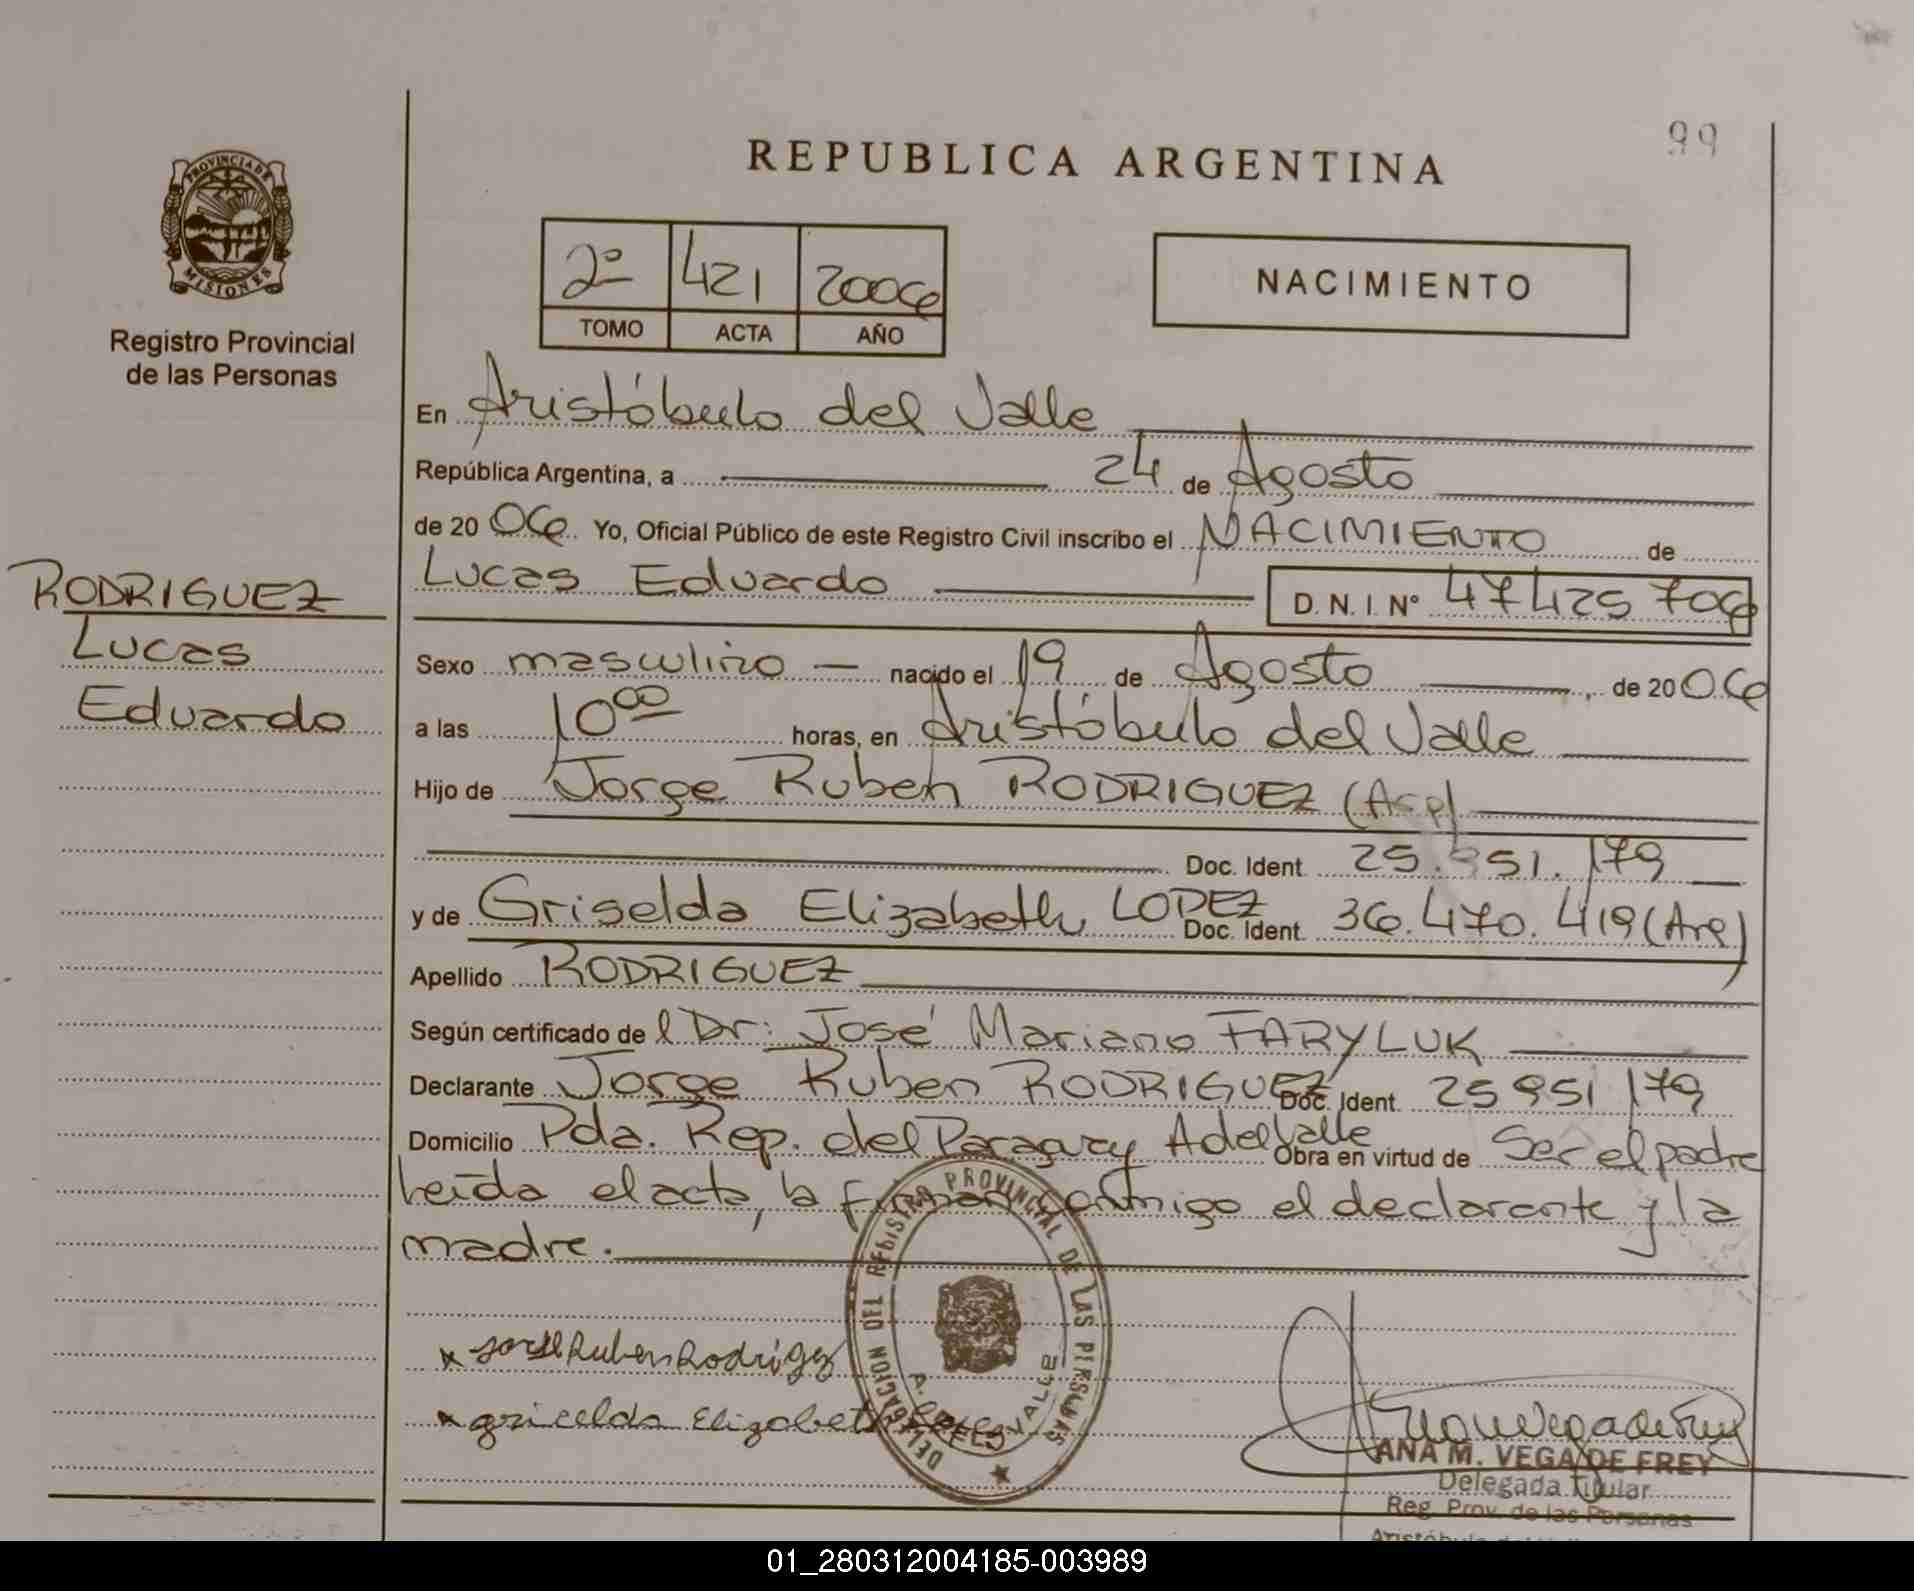 99
REPUBLICA ARGENTINA
PROVINCIA DE
MISIONES
Registro Provincial
de las Personas
2º 421 2006
TOMO ACTA AÑO
NACIMIENTO
En Aristóbulo del Valle
República Argentina, a 24 de Agosto
de 20 06 Yo, Oficial Público de este Registro Civil inscribo el NACIMIENTO de
Lucas Eduardo D. N. I. Nº 47425706
RODRIGUEZ
Lucas
Eduardo
Sexo masculino nacido el 19 de Agosto, de 20 06
a las 10 00 horas, en Aristóbulo del Valle
Hijo de Jorge Ruben RODRIGUEZ (Arg)
Doc. Ident. 25.951.179
y de Griselda Elizabeth LOPEZ Doc. Ident. 36.470.419 (Arg)
Apellido RODRIGUEZ
Según certificado de l Dr: José Mariano FARYLUK
Declarante Jorge Ruben RODRIGUEZ Doc. Ident. 25 951 179
Domicilio Pda. Rep. del Paraguay A del Valle Obra en virtud de Ser el padre
Leída el acta, la firman conmigo el declarante y la
madre.
DELEGACION DEL REGISTRO PROVINCIAL DE LAS PERSONAS
A. DEL VALLE
x Jorge Ruben Rodrigez
x gricelda Elizabeth
ANA M. VEGA DE FREY
Delegada Titular
Reg. Prov. de las Personas
01_280312004185-003989